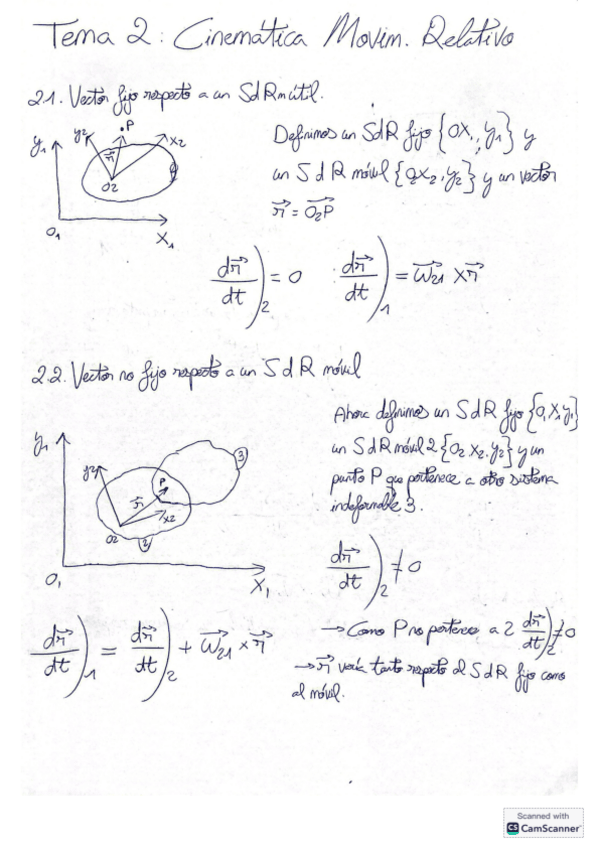 Tema 2: Cinemática Movim. Relativo
2.1. Vector fijo respecto a un SdR móvil.
y₁ y₂ P r⃗ x₂ O₂ O₁ X₁
Definimos un SdR fijo {OX₁, y₁} y
un SdR móvil {O₂X₂, y₂} y un vector
r⃗ = O₂P⃗
dr⃗/dt)₂ = 0 dr⃗/dt)₁ = ω⃗₂₁ × r⃗
2.2. Vector no fijo respecto a un SdR móvil
Ahora definimos un SdR fijo {O₁X₁y₁}
un SdR móvil 2 {O₂X₂, y₂} y un
punto P que pertenece a otro sistema
indeformable 3.
y₁ y₂ P r⃗ x₂ O₂ 2 3 O₁ X₁
dr⃗/dt)₂ ≠ 0
→ Como P no pertenece a 2 dr⃗/dt)₂ ≠ 0
dr⃗/dt)₁ = dr⃗/dt)₂ + ω⃗₂₁ × r⃗
→ r⃗ varía tanto respecto al SdR fijo como
al móvil.
Scanned with
CS CamScanner